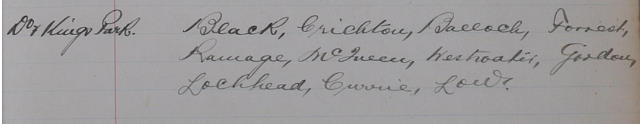 Do. Kings Park. Black, Crichton, Balloch, Forrest,
Ramage, McQueen, Westwater, Gordon,
Lochhead, Currie, Low.